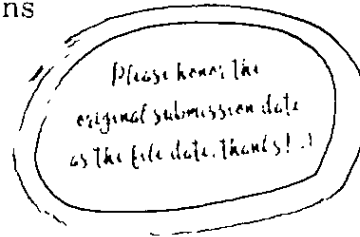 ns
Please honor the
original submission date
as the file date. thanks! :)